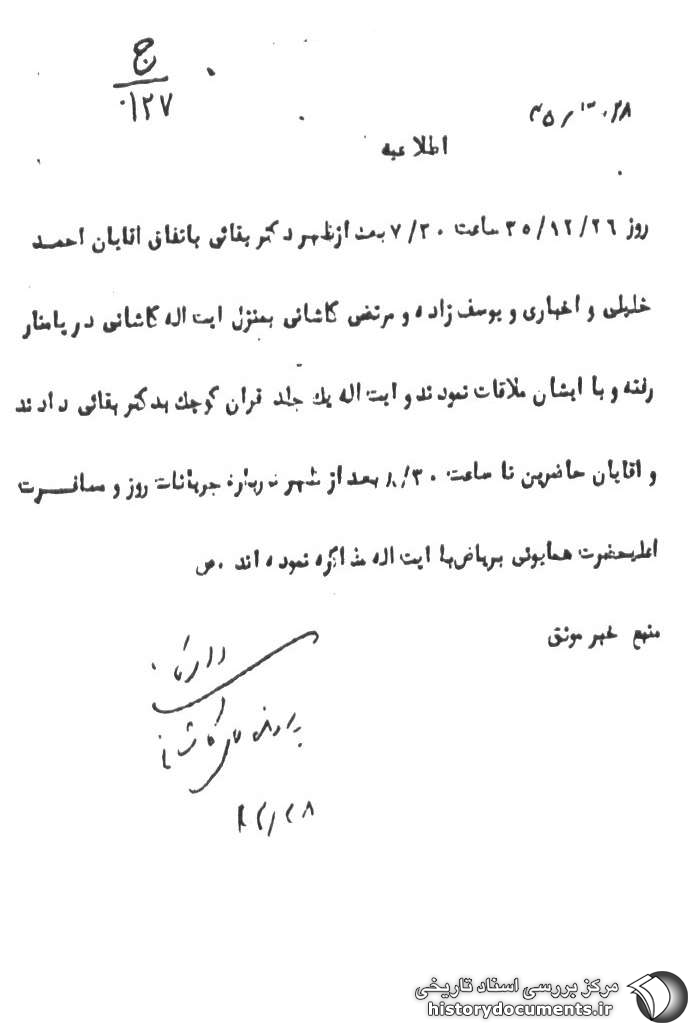 ج
۰۱۲۷
اطلاعیه
روز ۳۵/۱۲/۲۶ ساعت ۷/۳۰ بعد ازظهر دکتر بقائی باتفاق اقایان احمد
خلیلی و اخباری و یوسف زاده و مرتضی کاشانی بمنزل ایت اله کاشانی در پامنار
رفته و با ایشان ملاقات نمودند و ایت اله یك جلد قران کوچك بدکتر بقائی دادند
و اقایان حاضرین تا ساعت ۸/۳۰ بعد از ظهر درباره جریانات روز و مسافرت
اعلیحضرت همایونی بریاض با ایت اله مذاکره نموده اند ۰ص
منبع خبر موثق
کاشانی
مرکز بررسی اسناد تاریخی
historydocuments.ir